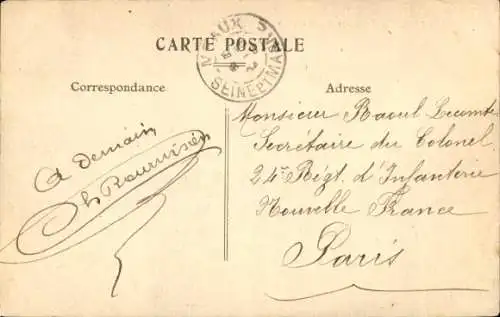 CARTE POSTALE
Correspondance
Adresse
A Demain
Monsieur Raoul Lecomte
Secrétaire du Colonel
24me Régt. d'Infanterie
Nouvelle France
Paris